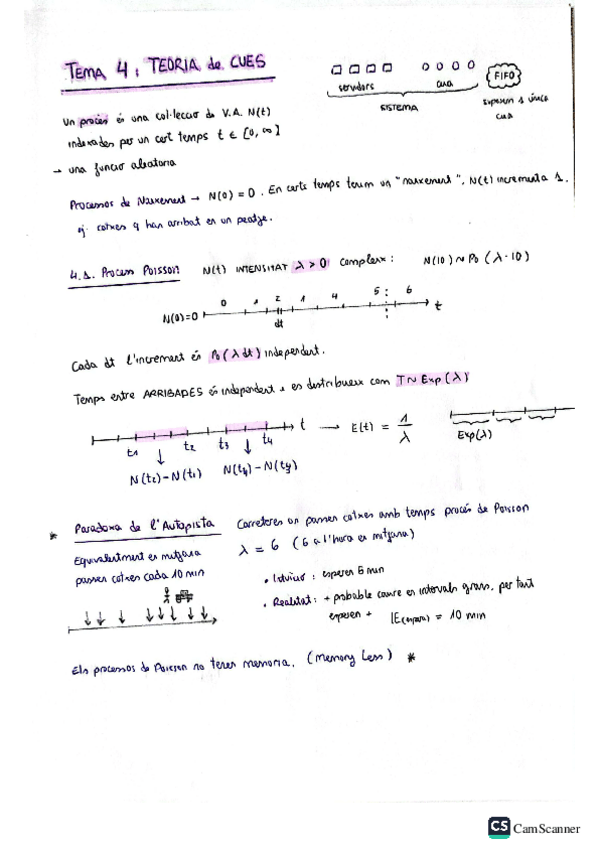 TEMA 4: TEORIA de CUES
servidors
cua
SISTEMA
FIFO
esperem a única
cua
Un procés és una col·lecció de V.A. N(t)
indexades per un cert temps t ∈ [0, ∞]
→ una funció aleatoria
Processos de Naixement → N(0) = 0. En certs temps tenim un "naixement", N(t) incrementa 1.
ej. cotxes q han arribat en un peatge.
4.1. Procés Poisson N(t) INTENSITAT λ > 0 complex: N(10) ~ Po (λ·10)
0 1 2 1 4 5 6
N(0)=0
dt
t
Cada dt l'increment és Po(λ dt) independent.
Temps entre ARRIBADES és independent i es distribueix com T ~ Exp(λ)
t1 t2 t3 t4 t → E(t) = 1/λ
Exp(λ)
N(t2)-N(t1) N(t4)-N(t3)
* Paradoxa de l'Autopista
Carreteres on passen cotxes amb temps procés de Poisson
λ = 6 (6 a l'hora en mitjana)
Equivalentment en mitjana
passen cotxes cada 10 min
• Intuïció: esperem 6 min
• Realitat: + probable caure en intervals grans, per tant
esperem + E(espera) = 10 min
Els processos de Poisson no tenen memoria. (Memory Less) *
CS CamScanner